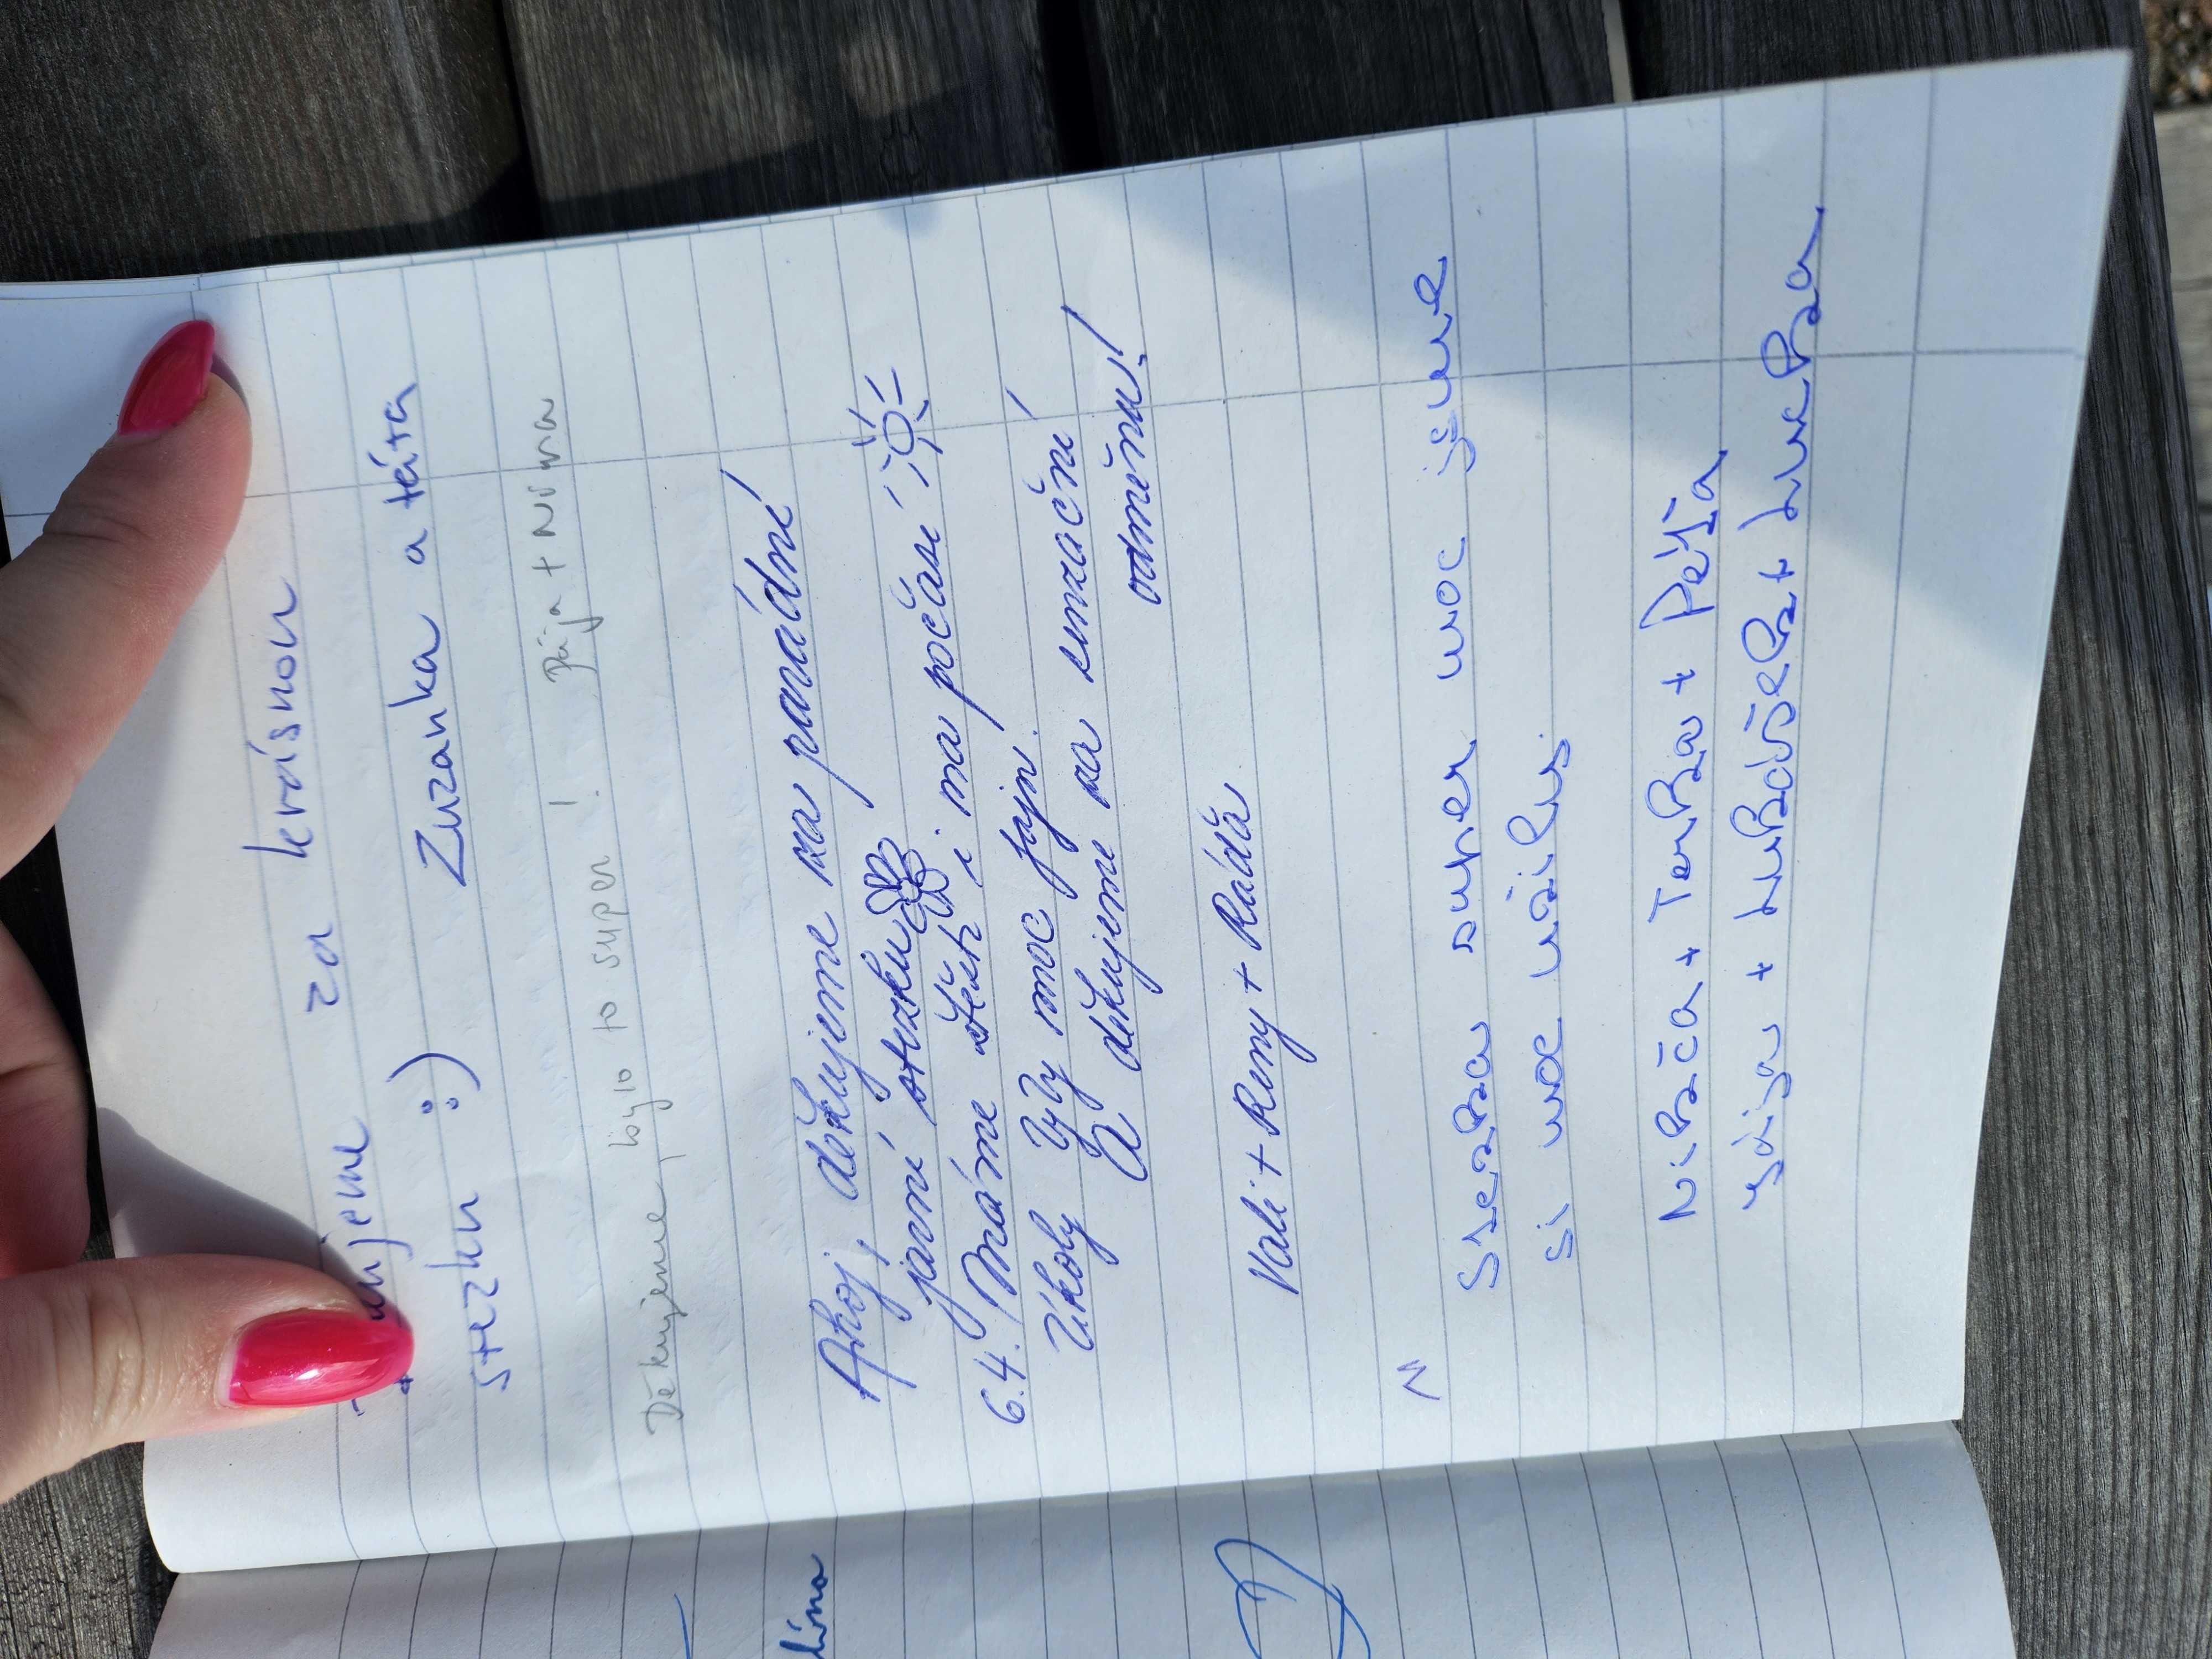 za krásnou
stezku :) Zuzanka a táta
Děkujeme, bylo to super! Pája + Nina
Ahoj, děkujeme za parádní
jarní stezku
6.4. Máme štěstí i na počasí
Úkoly byly moc fajn.
děkujeme za senzační
odměnu!
Vali + Romy + Ráďa
N
Stezka super moc jsme
si moc užili.
Nikča + Terka + Péťa
Jája + Lukášek + Lucka
lína